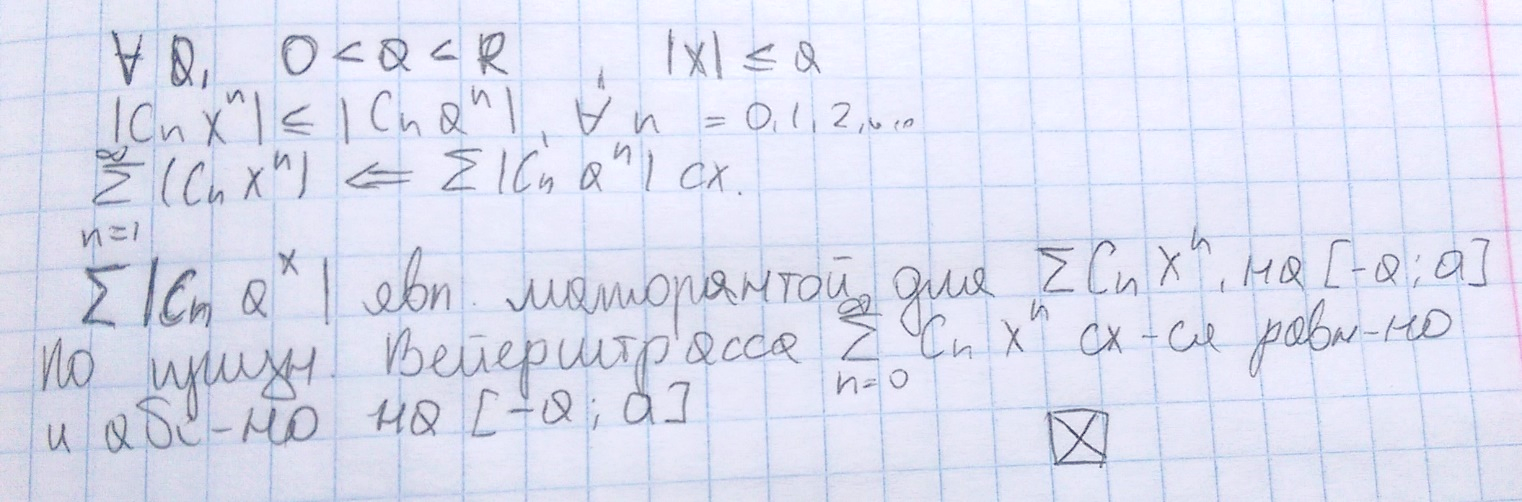 ∀ a, 0 < a < R, |x| ≤ a
|Cn xⁿ| ≤ |Cn aⁿ|, ∀ n = 0, 1, 2, ...
∑_{n=1}^{∞} |Cn xⁿ| ⇐ ∑ |Cn aⁿ| сх.
∑ |Cn aˣ| явл. маторантой для ∑ Cn xⁿ, на [-a; a]
по призн. Вейерштрасса ∑_{n=0}^{∞} Cn xⁿ сх-ся равн-но
и абс-но на [-a; a]